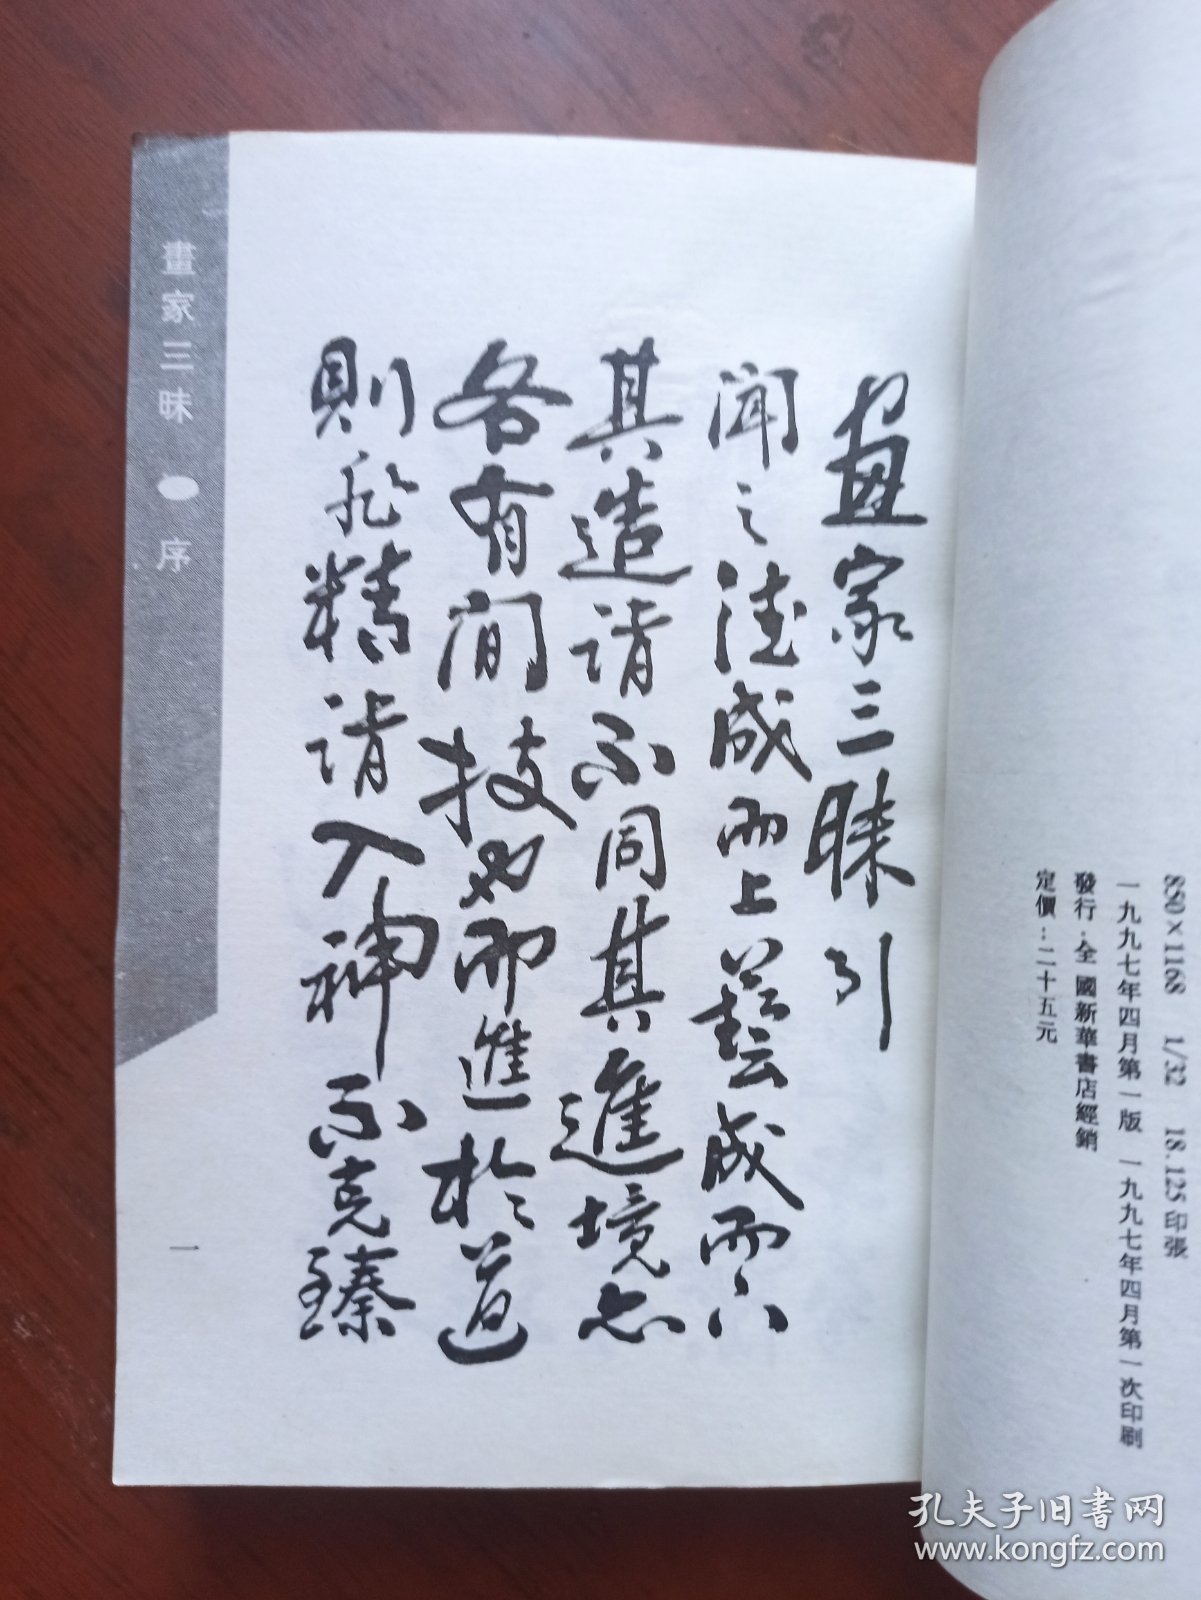 850×1168 1/32 18.125印張
一九九七年四月第一版 一九九七年四月第一次印刷
發行:全國新華書店經銷
定價:二十五元
畫家三昧引
聞之德成而上藝成而下
其造詣不同其進境亦
各有間技也而進於道
則非精詣入神不克臻
畫家三昧 ● 序
一
孔夫子旧书网
www.kongfz.com